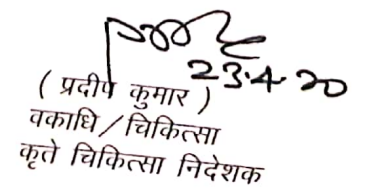 23.4.20
( प्रदीप कुमार )
वकाधि / चिकित्सा
कृते चिकित्सा निदेशक